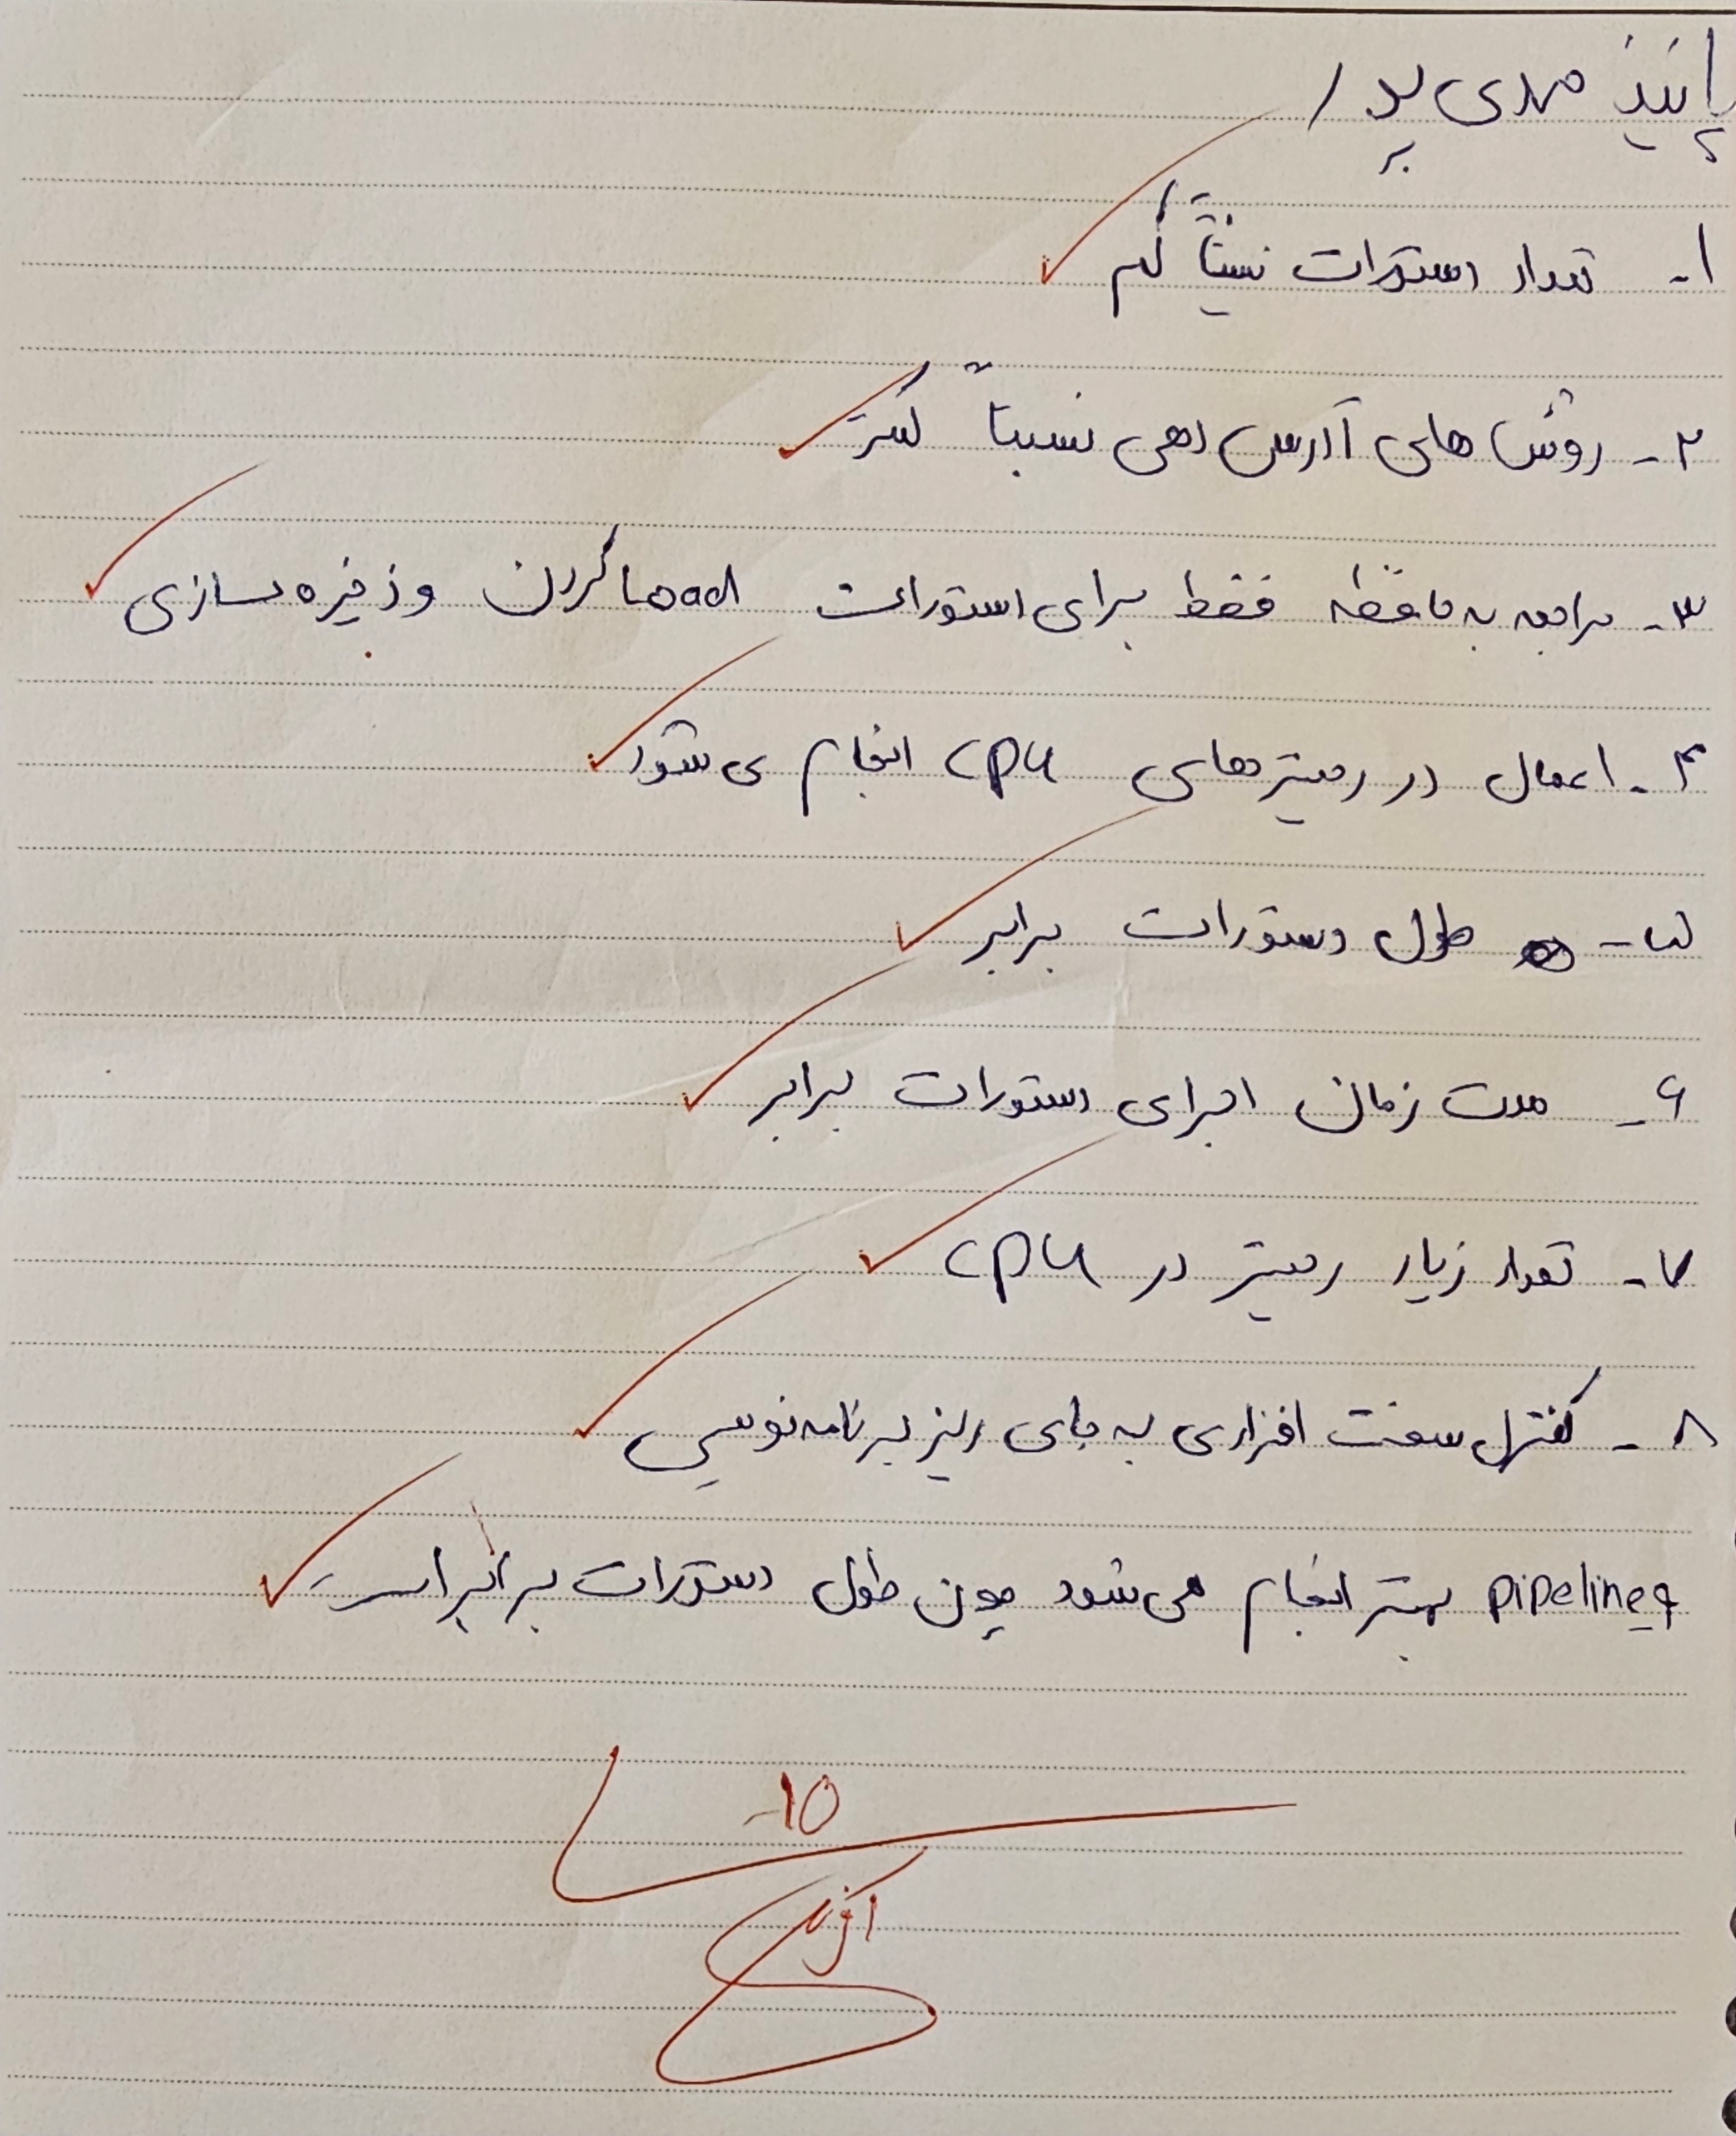 پانیذ مهدی پور
۱- تعداد دستورات نسبتاً کم
۲- روش های آدرس دهی نسبتاً کمتر
۳- مراجعه به حافظه فقط برای استورات Load کردن و ذخیره سازی
۴- اعمال در رجیسترهای CPU انجام ی شود
۵- طول دستورات برابر
۶- مدت زمان اجرای دستورات برابر
۷- تعداد زیاد رجیستر در CPU
۸- کنترل سخت افزاری به جای ریز برنامه نویسی
و pipeline بهتر انجام می شود چون طول دستورات برابر است
10